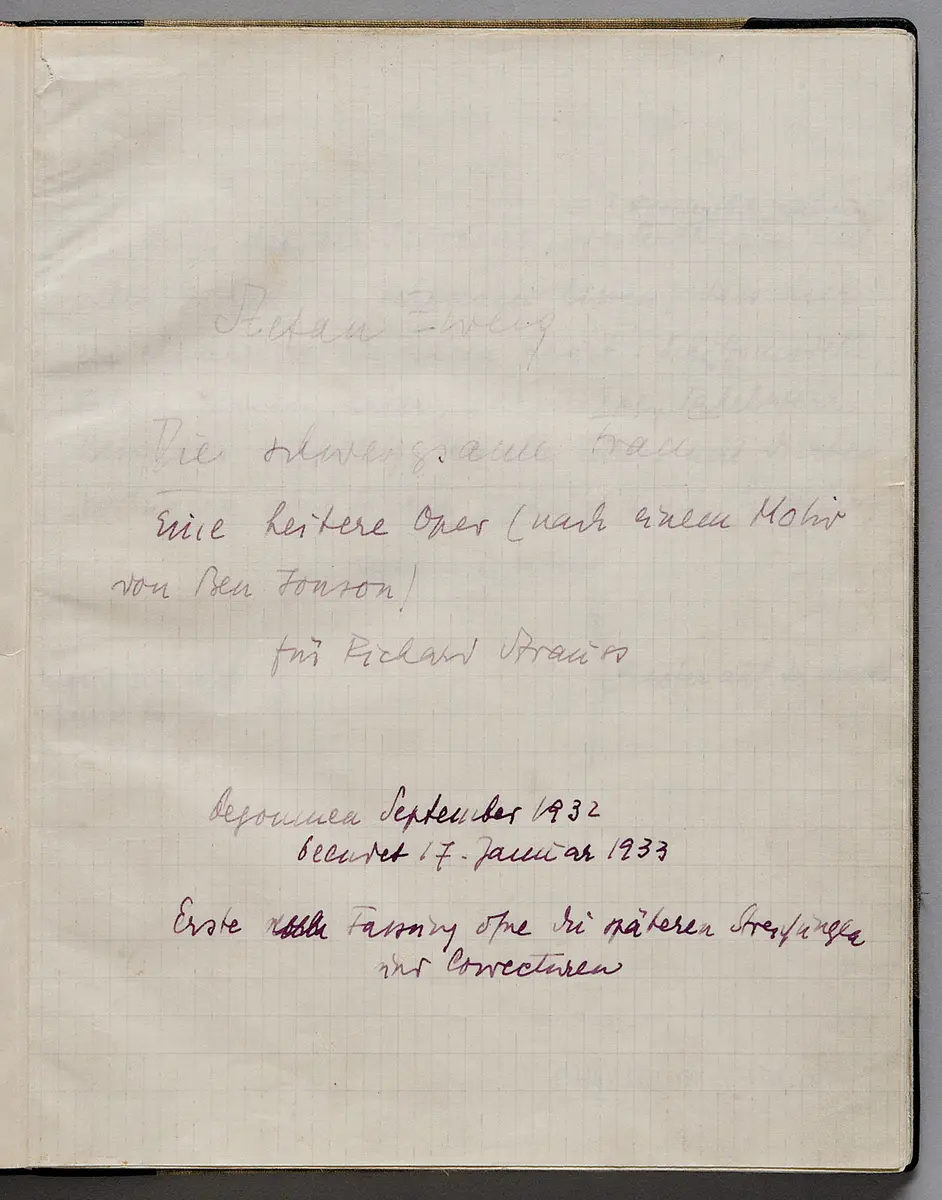 Stefan Zweig
Die schweigsame Frau
Eine heitere Oper (nach einem Motiv
von Ben Jonson)
für Richard Strauss
Begonnen September 1932
beendet 17. Januar 1933
Erste Fassung ohne die späteren Streichungen
und Correcturen